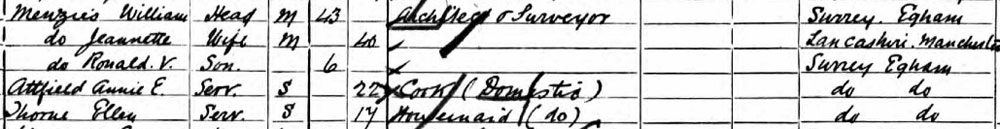 Menzies William Head M 43 Architect & Surveyor Surrey. Egham
do Jeannette Wife M 40 Lancashire. Manchester
do Ronald. V. Son. 6 Surrey Egham
Attfield Annie E. Serv. S 22 Cook (Domestic) do do
Thorne Ellen Serv S 17 Housemaid (do) do do